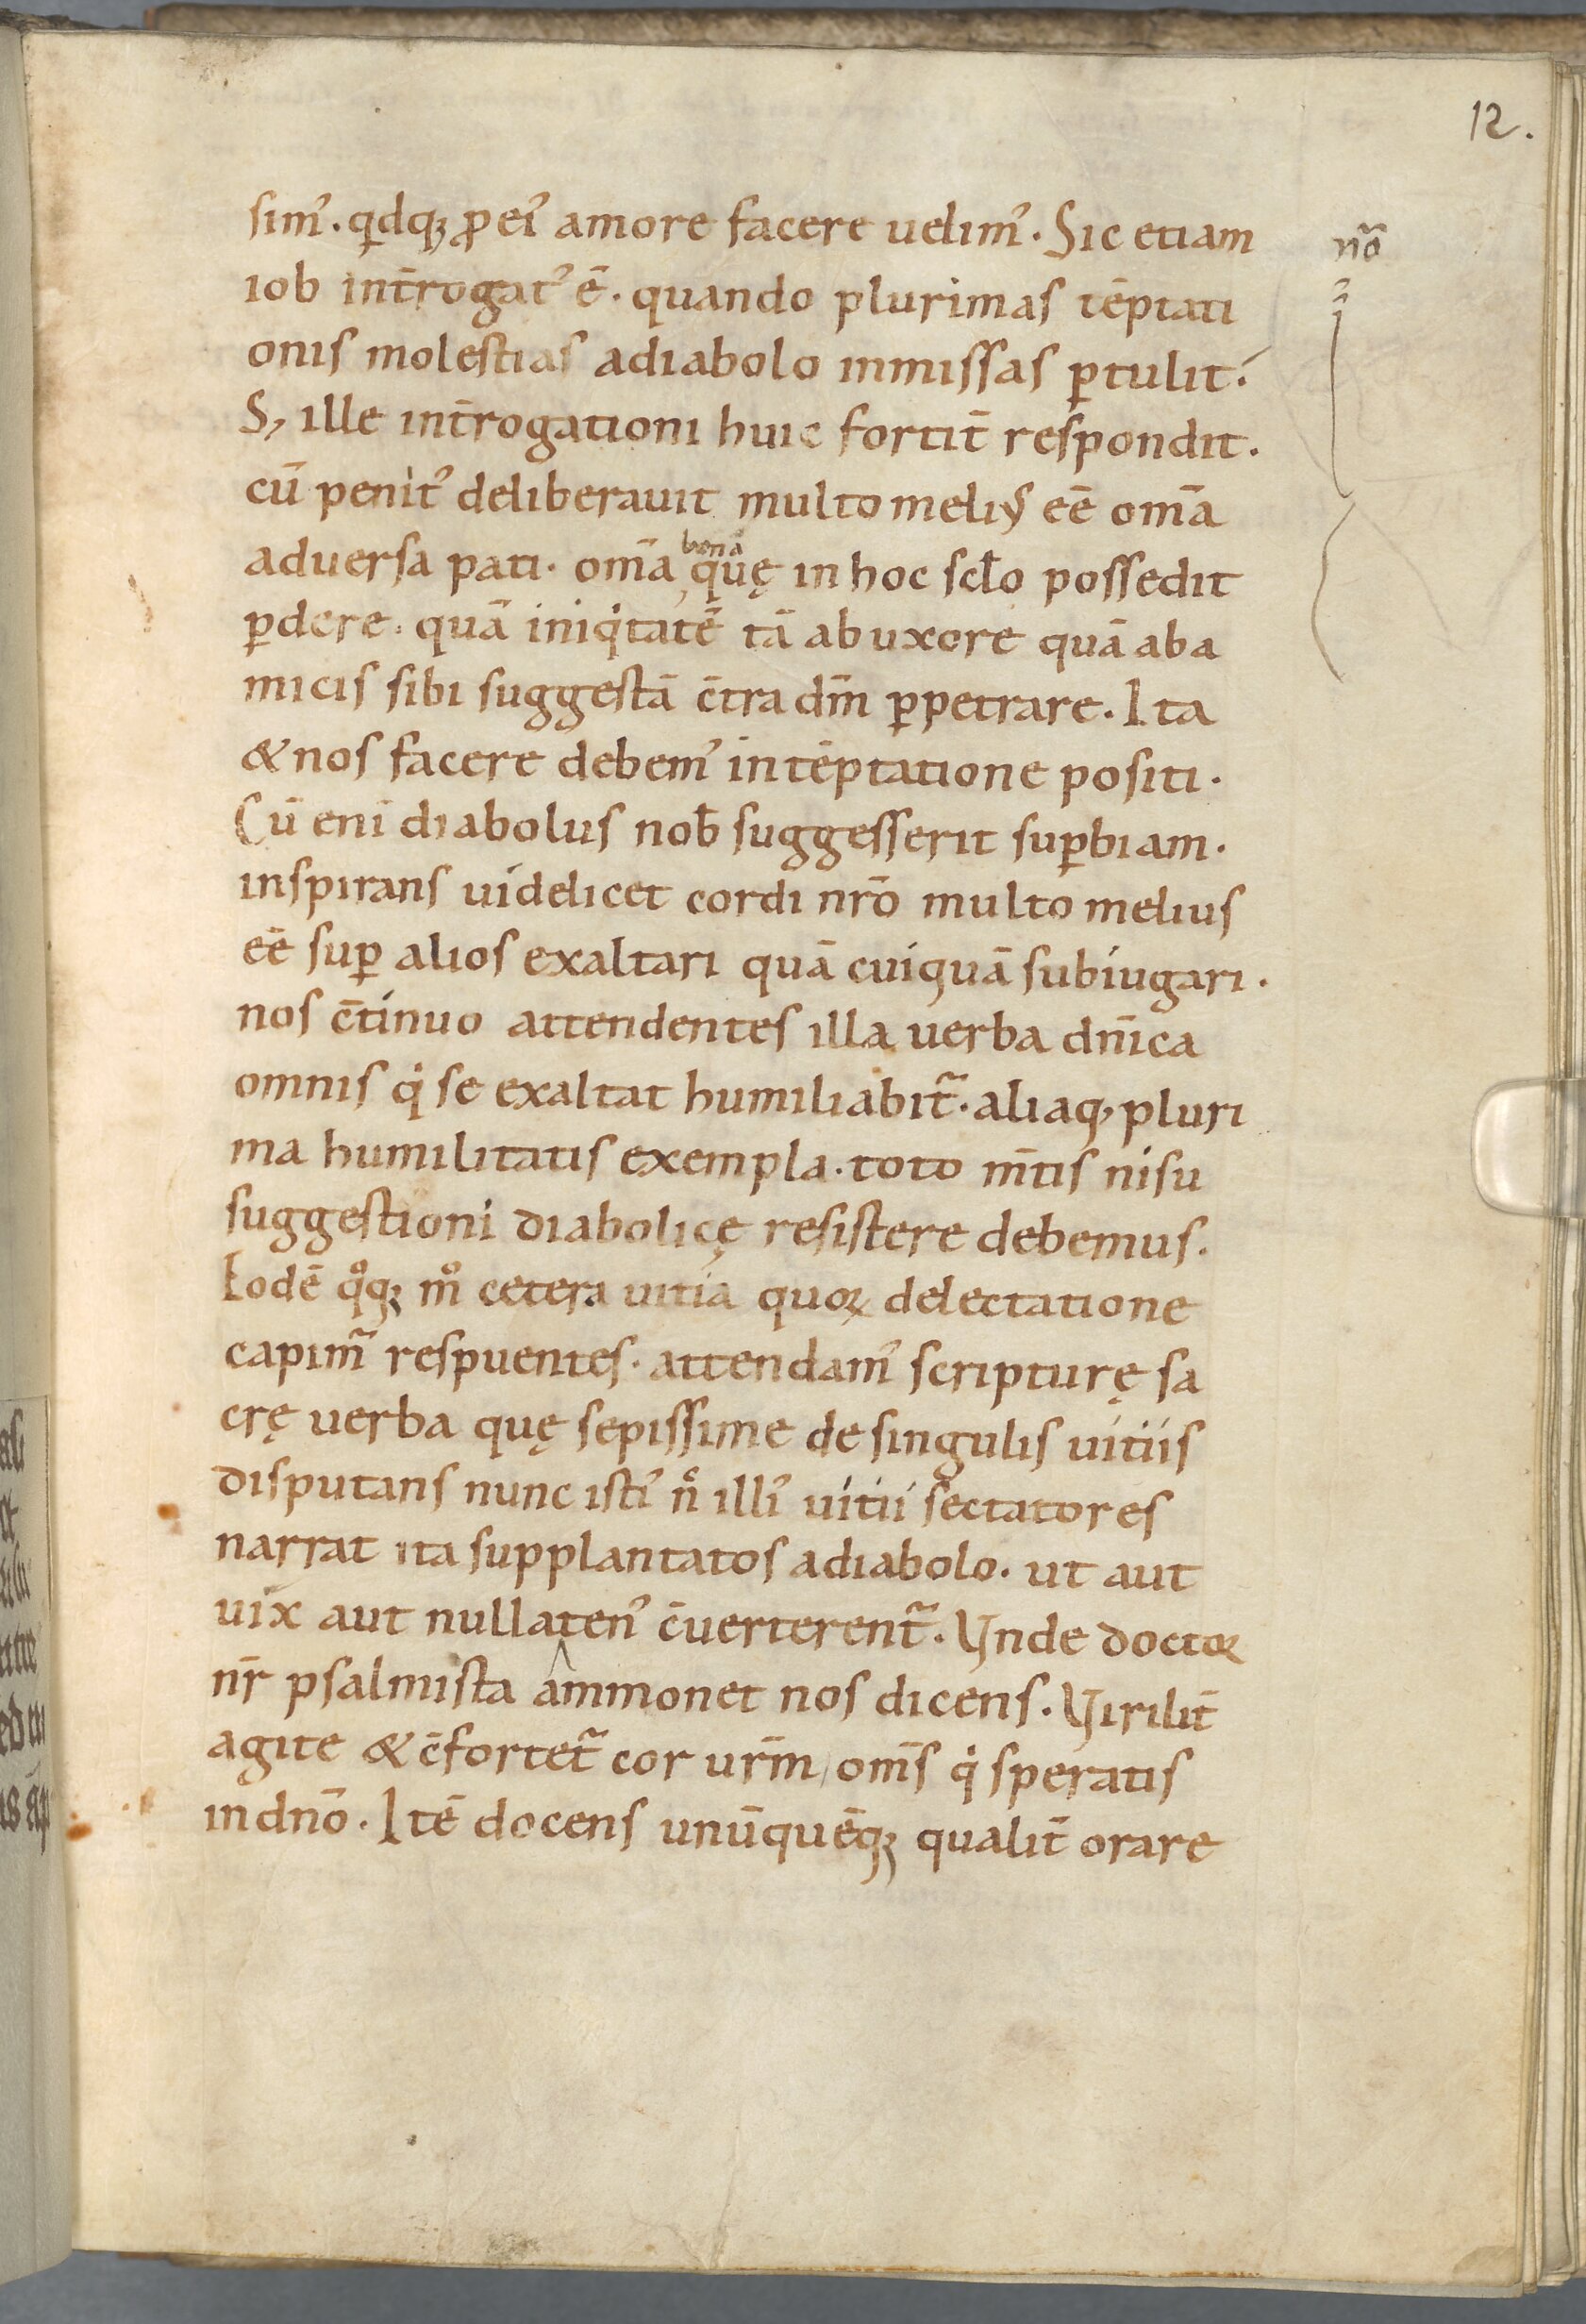 12.
simꝰ. qͥdqꝫ ꝓ eiꝰ amore facere uelimꝰ. Sic etiam
nō
iob int̄rogatꝰ ē. quando plurimas tēptati
onis molestias adiabolo inmissas ꝑtulit.
S; ille int̄rogationi huic fortit̄ respondit.
cū penitꝰ deliberauit multo meliꝰ eē om̄a
bona
aduersa pati. om̄a, quę in hoc sclo possedit
ꝑdere. quā iniqͥtatē tā abuxore quā aba
micis sibi suggestā c̄tra dm̄ ꝑpetrare. Ita
& nos facere debemꝰ intēptatione positi.
Cū enī diabolus nob̄ suggesserit suꝑbiam.
inspirans uidelicet cordi nrō multo melius
eē suꝑ alios exaltari quā cuiquā subiugari.
nos c̄tinuo attendentes illa uerba dnīca
omnis qͥ se exaltat humiliabit̃. aliaq; pluri
ma humilitatis exempla. toto m̄tis nisu
suggestioni diabolicę resistere debemus.
Eodē qͦqꝫ mͦ cetera uitia quoꝝ delectatione
capim̃ respuentes. attendamꝰ scripturę sa
crę uerba quę sepissime de singulis uitiis
disputans nunc istiꝰ nͨ illiꝰ uitii sectatores
narrat ita supplantatos adiabolo. ut aut
uix aut nullatenꝰ c̄uerterent̃. Vnde doctoꝝ
nr̄ psalmista ammonet nos dicens. Virilit̄
agite & c̄fortet̃ cor urm̄, oms̄ qͥ speratis
indnō. Itē docens unūquēqꝫ qualit̄ orare